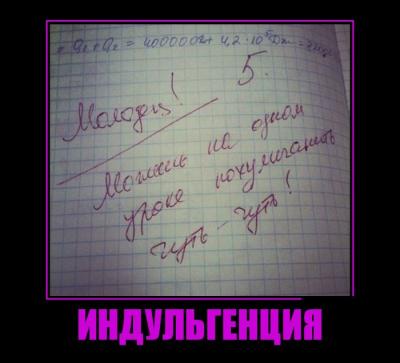 = 400000 + 4,2 · 10
5.
Молодец!
Можешь на одном
уроке похулиганить
чуть - чуть!
ИНДУЛЬГЕНЦИЯ